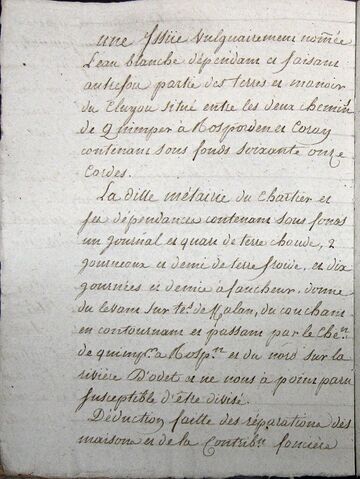 une Issüe vulguairement nomée
L'eau blanche dépendant et faisant
autrefois partie des terres et manoir
du Cluyou situé entre les deux chemin
de Quimper à Rosporden et Coray
contenant sous fonds soixante onze
Cordes.
La ditte métairie du Chartier et
ses dépendances contenant sous fonds
un journal et quart de terre chaude, 2
journeaux et demi de terre froide, et dix
journées et demie à faucheur, donne
du levant sur de Kulan, du couchant
en contournant et passant par le Chen.
de quimpr. à Rospn. et du nord sur la
rivière D'odet et ne nous à point paru
susceptible d'être divisé.
Déduction faitte des réparations des
maisons et de la Contribn. foncière